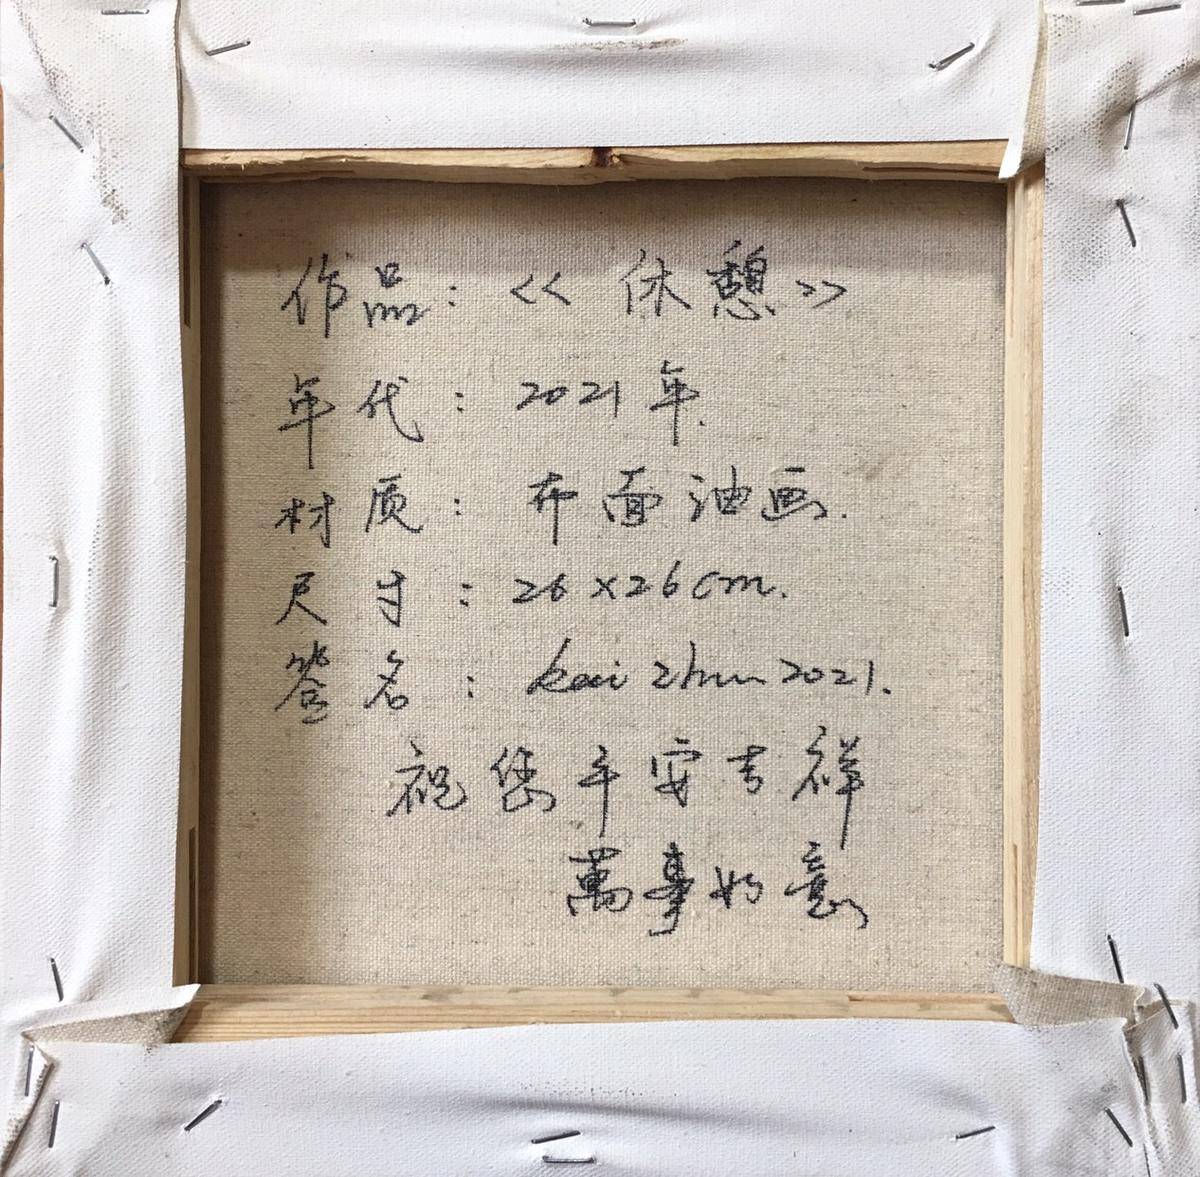 作品：<<休憩>>
年代：2021年.
材质：布面油画.
尺寸：26×26cm.
签名：kai zhun 2021.
祝您平安吉祥
萬事如意